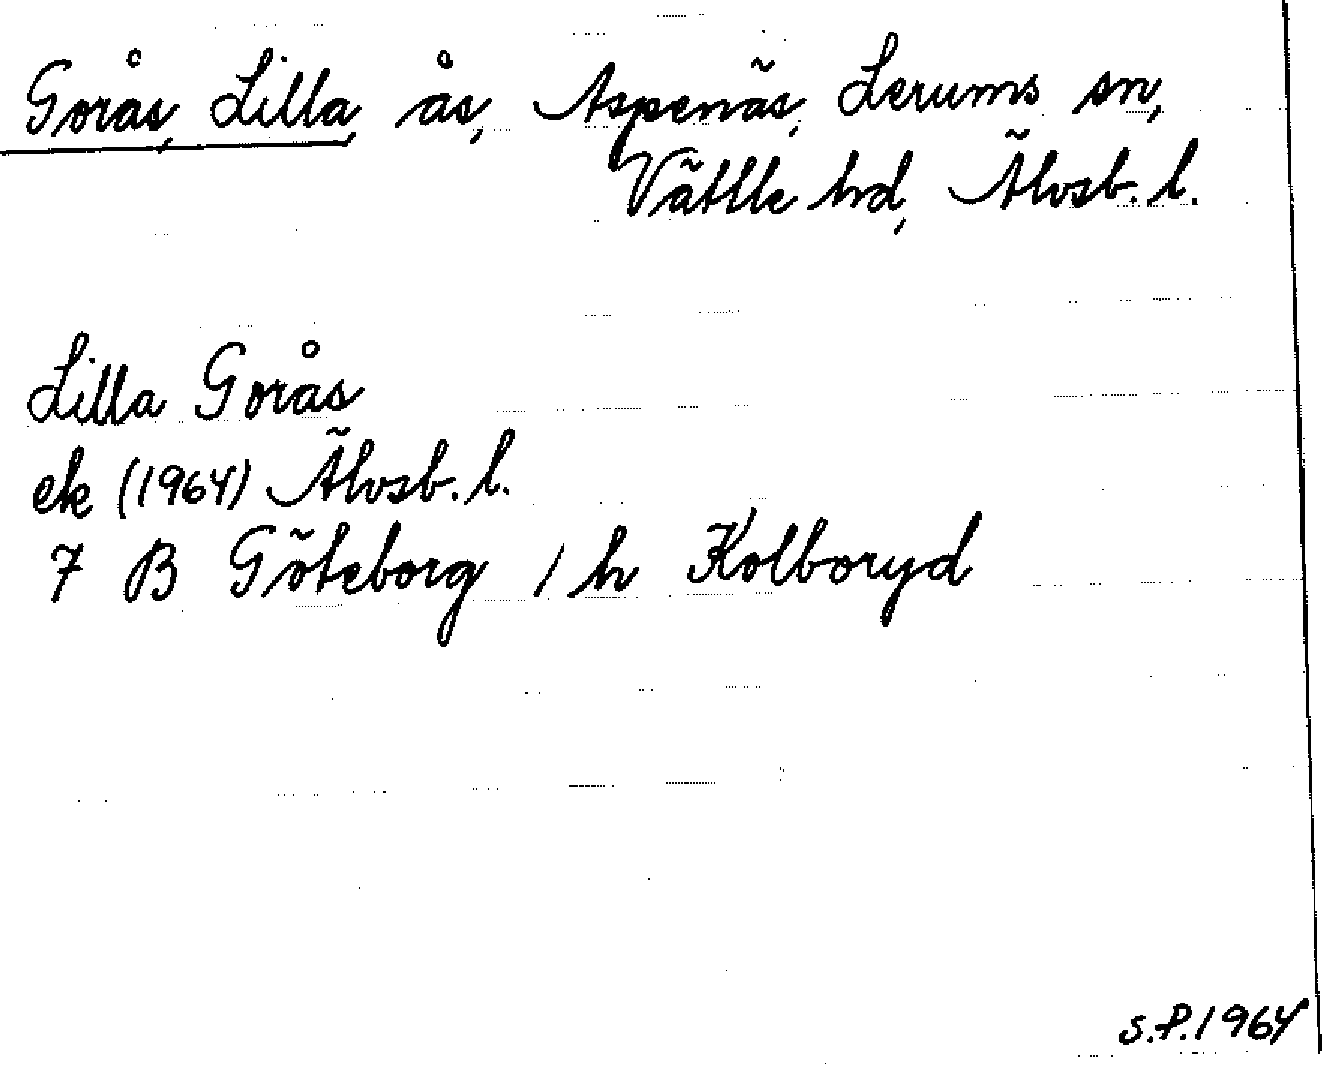 Gorås, Lilla, ås, Aspenäs, Lerums sn,
Vättle hd, Älvsb. l.
Lilla Gorås
ek (1964) Älvsb. l.
7 B Göteborg 1 h Kolboryd
S.P. 1964